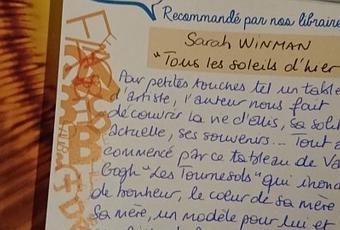 Recommandé par nos libraire
Sarah WINMAN
"Tous les soleils d'hier
Par petites touches tel un table
d'artiste, l'auteur nous fait
découvrir la vie d'Ellis, sa soli
actuelle, ses souvenirs... Tout a
commencé par ce tableau de Va
Gogh "Les Tournesols" qui inond
de bonheur, le cœur de sa mère
Sa mère, un modèle pour lui et